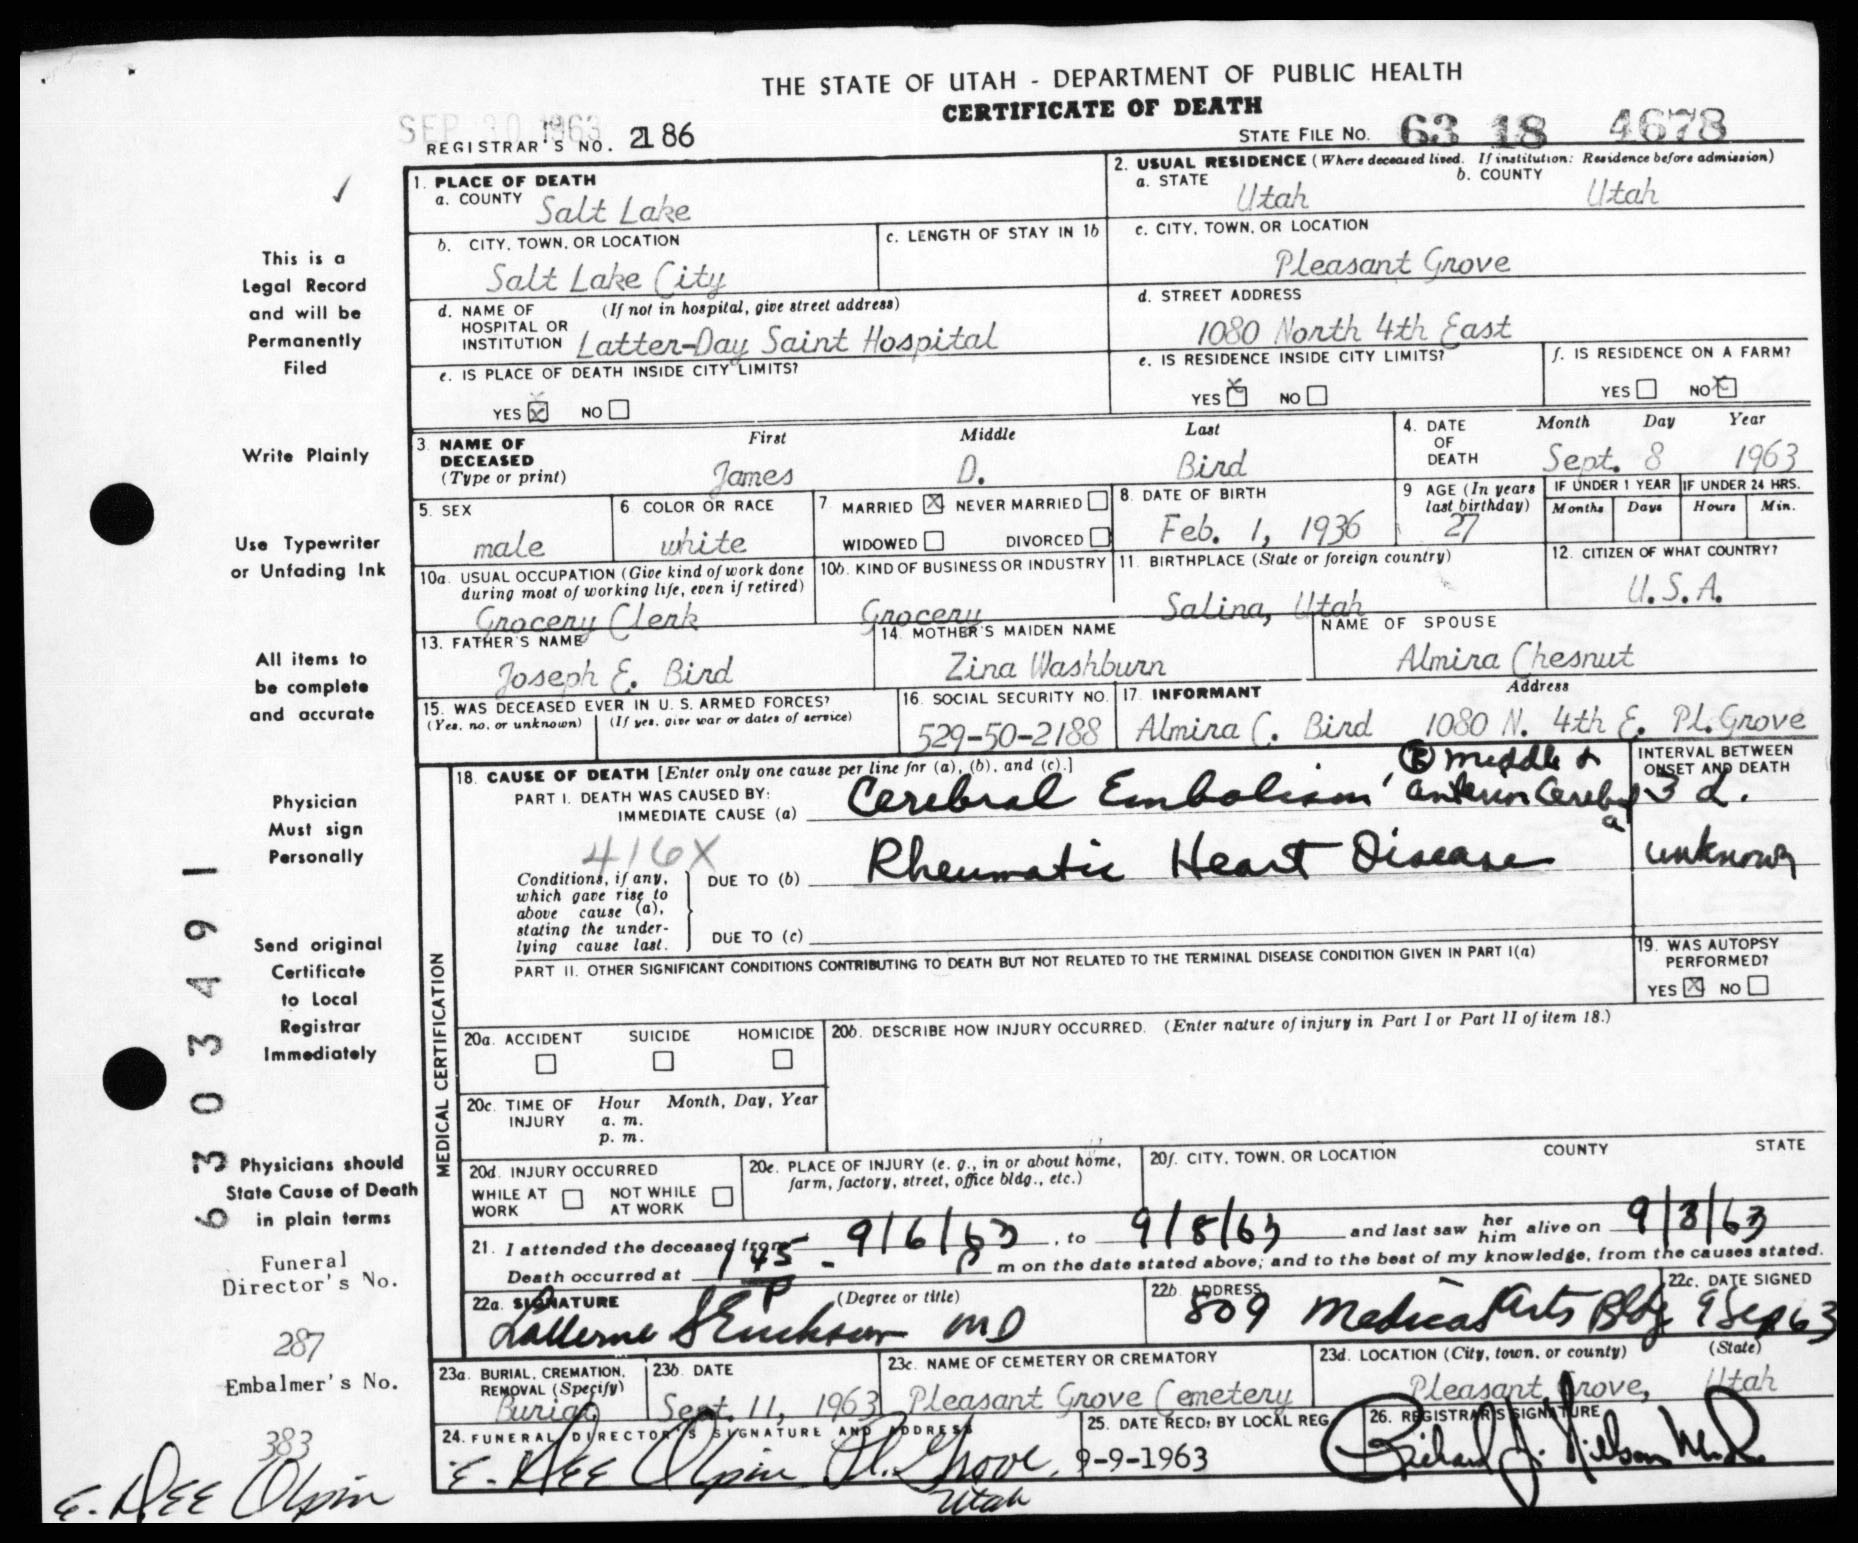 THE STATE OF UTAH - DEPARTMENT OF PUBLIC HEALTH
CERTIFICATE OF DEATH
SEP 30 1963
REGISTRAR'S NO. 2186
STATE FILE NO. 63 18 4678
1. PLACE OF DEATH
a. COUNTY Salt Lake
2. USUAL RESIDENCE (Where deceased lived. If institution: Residence before admission)
a. STATE Utah b. COUNTY Utah
b. CITY, TOWN, OR LOCATION Salt Lake City
c. LENGTH OF STAY IN 1b
c. CITY, TOWN, OR LOCATION Pleasant Grove
d. NAME OF HOSPITAL OR INSTITUTION (If not in hospital, give street address) Latter-Day Saint Hospital
d. STREET ADDRESS 1080 North 4th East
e. IS PLACE OF DEATH INSIDE CITY LIMITS? YES X NO
e. IS RESIDENCE INSIDE CITY LIMITS? YES X NO
f. IS RESIDENCE ON A FARM? YES NO X
3. NAME OF DECEASED (Type or print) First James Middle D. Last Bird
4. DATE OF DEATH Month Day Year Sept. 8 1963
5. SEX male
6. COLOR OR RACE white
7 MARRIED X NEVER MARRIED WIDOWED DIVORCED
8. DATE OF BIRTH Feb. 1, 1936
9 AGE (In years last birthday) 27
IF UNDER 1 YEAR Months Days
IF UNDER 24 HRS. Hours Min.
10a. USUAL OCCUPATION (Give kind of work done during most of working life, even if retired) Grocery Clerk
10b. KIND OF BUSINESS OR INDUSTRY Grocery
11. BIRTHPLACE (State or foreign country) Salina, Utah
12. CITIZEN OF WHAT COUNTRY? U.S.A.
13. FATHER'S NAME Joseph E. Bird
14. MOTHER'S MAIDEN NAME Zina Washburn
NAME OF SPOUSE Almira Chesnut
15. WAS DECEASED EVER IN U. S. ARMED FORCES?
(Yes, no, or unknown) (If yes, give war or dates of service)
16. SOCIAL SECURITY NO. 529-50-2188
17. INFORMANT Address
Almira C. Bird 1080 N. 4th E. Pl. Grove
MEDICAL CERTIFICATION
18. CAUSE OF DEATH [Enter only one cause per line for (a), (b), and (c).]
INTERVAL BETWEEN ONSET AND DEATH
PART I. DEATH WAS CAUSED BY:
IMMEDIATE CAUSE (a) Cerebral Embolism, (R) middle & anterior Cerebral a 3 d.
416X
Conditions, if any, which gave rise to above cause (a), stating the underlying cause last.
DUE TO (b) Rheumatic Heart Disease unknown
DUE TO (c)
PART II. OTHER SIGNIFICANT CONDITIONS CONTRIBUTING TO DEATH BUT NOT RELATED TO THE TERMINAL DISEASE CONDITION GIVEN IN PART I(a)
19. WAS AUTOPSY PERFORMED? YES X NO
20a. ACCIDENT SUICIDE HOMICIDE
20b. DESCRIBE HOW INJURY OCCURRED. (Enter nature of injury in Part I or Part II of item 18.)
20c. TIME OF INJURY Hour a. m. p. m. Month, Day, Year
20d. INJURY OCCURRED WHILE AT WORK NOT WHILE AT WORK
20e. PLACE OF INJURY (e. g., in or about home, farm, factory, street, office bldg., etc.)
20f. CITY, TOWN, OR LOCATION COUNTY STATE
21. I attended the deceased from 9/6/63, to 9/8/63 and last saw her him alive on 9/8/63
Death occurred at 1 45 P m on the date stated above; and to the best of my knowledge, from the causes stated.
22a. SIGNATURE (Degree or title) LaVerne S Erickson MD
22b. ADDRESS 809 Medical Arts Bldg
22c. DATE SIGNED 9 Sep 63
23a. BURIAL, CREMATION, REMOVAL (Specify) Burial
23b. DATE Sept. 11, 1963
23c. NAME OF CEMETERY OR CREMATORY Pleasant Grove Cemetery
23d. LOCATION (City, town, or county) (State) Pleasant Grove, Utah
24. FUNERAL DIRECTOR'S SIGNATURE AND ADDRESS
E. Dee Olpin Pl. Grove, Utah
25. DATE RECD. BY LOCAL REG. 9-9-1963
26. REGISTRAR'S SIGNATURE Richard J. Nilson M.D.
This is a
Legal Record
and will be
Permanently
Filed
Write Plainly
Use Typewriter
or Unfading Ink
All items to
be complete
and accurate
Physician
Must sign
Personally
Send original
Certificate
to Local
Registrar
Immediately
Physicians should
State Cause of Death
in plain terms
Funeral
Director's No.
287
Embalmer's No.
383
E. Dee Olpin
6303491